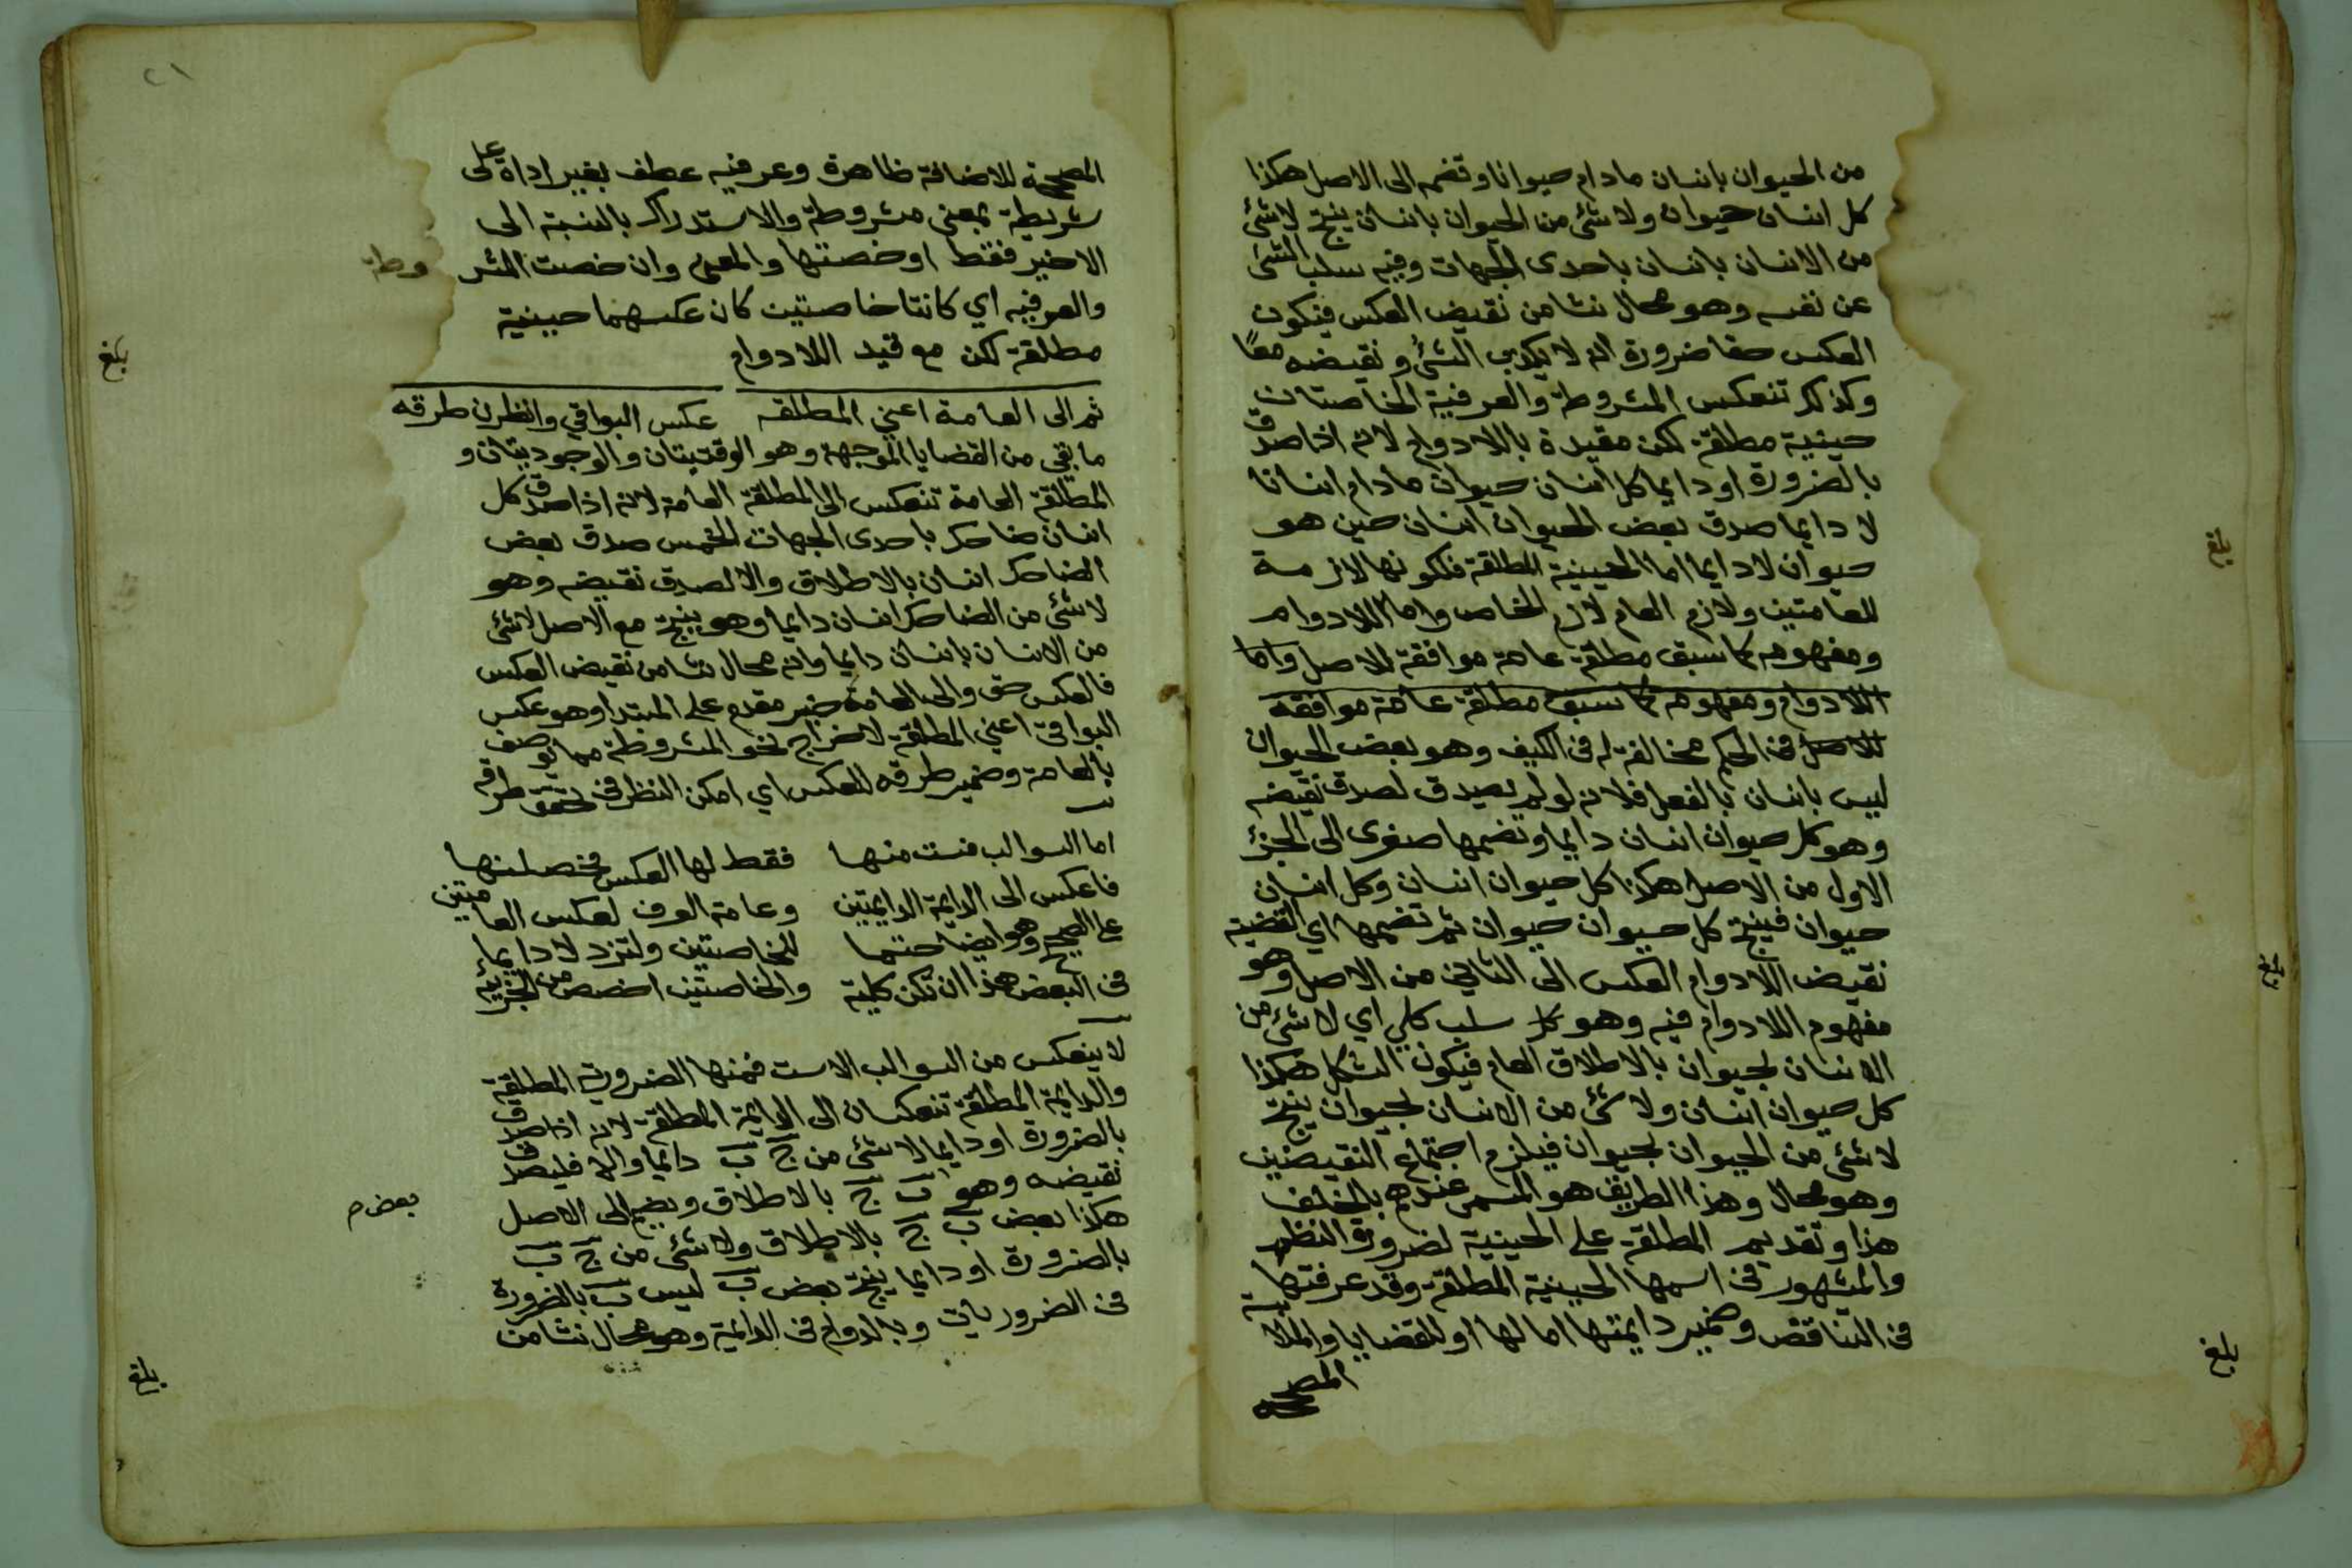 من الحيوان بانسان مادام حيوانا وتضمه الى الاصل هكذا
كل انسان حيوان ولا شئ من الحيوان بانسان ينتج لا شئ
من الانسان بانسان باحدى الجهات وفيه سلب الشئ
عن نفسه وهو محال نشا من نقيض العكس فيكون
العكس حقا ضرورة انه لا يكذب الشئ ونقيضه معًا
وكذلك تنعكس المشروطة والعرفية الخاصتان
حينية مطلقة لكن مقيدة باللادوام لانه اذا صدق
بالضرورة او دايما كل انسان حيوان مادام انسانا
لا دايما صدق بعض الحيوان انسان حين هو
حيوان لا دايما اما الحينية المطلقة فلكونها لازمة
للعامتين ولازم العام لازم الخاص واما اللادوام
ومفهومه كما سبق مطلقة عامة موافقة للاصل واما
اللادوام ومفهومه كما سبق مطلقة عامة موافقة
للاصل فى الحكم مخالفة له فى الكيف وهو بعض الحيوان
ليس بانسان بالفعل فلانه لو لم يصدق لصدق نقيضه
وهو كل حيوان انسان دايما ونضمها صغرى الى الجزء
الاول من الاصل هكذا كل حيوان انسان وكل انسان
حيوان فينتج كل حيوان حيوان ثم تضمها اي القضية
نقيض اللادوام العكس الى الثاني من الاصل وهو
مفهوم اللادوام فيه وهو كل سلب كلي اي لا شئ من
الانسان بحيوان بالاطلاق العام فيكون الشكل هكذا
كل حيوان انسان ولا شئ من الانسان بحيوان ينتج
لا شئ من الحيوان بحيوان فيلزم اجتماع النقيضين
وهو محال وهذا الطريق هو المسمى عندهم بالخلف
هذا وتقديم المطلقة على الحينية لضرورة النظم
والمشهور فى اسمها الحينية المطلقة وقد عرفتها
فى التناقض وضمير دايمتها اما لها او للقضايا والملابسة
المصححة
بلغ
بلغ
بلغ
بلغ
٢١
المصححة للاضافة ظاهرة وعرفيه عطف بغير اداة على
شريطية بمعنى مشروطة والاستدراك بالنسبة الى
الاخير فقط او خصتها والمعنى وان خصت المشروطة
والعرفيه اي كانتا خاصتين كان عكسهما حينية
مطلقة لكن مع قيد اللادوام
ثم الى العامة اعني المطلقه عكس البواقي وانظرن طرقه
ما بقي من القضايا الموجهة وهو الوقتيتان والوجوديتان و
المطلقة العامة تنعكس الى المطلقة العامة لانه اذا صدق كل
انسان ضاحك باحدى الجهات الخمس صدق بعض
الضاحك انسان بالاطلاق والا لصدق نقيضه وهو
لا شئ من الضاحك انسان دايما وهو ينتج مع الاصل لا شئ
من الانسان بانسان دايما وانه محال نشا من نقيض العكس
فالعكس حق والى العامة خبر مقدم على المبتدا وهو عكس
البواقي اعني المطلقة لاخراج نحو المشروطة مما توصف
بالعامة وضمير طرقه للعكس اي امكن النظر فى تحقق طرقه
اما السوالب فست منها فقط لها العكس فخصلنها
فاعكس الى الدايمة الدايمتين وعامة العرف لعكس العامتين
على الصحيح وهو ايضا حتما للخاصتين ولتزد لا دايما
فى البعض هذا ان تكن كلية والخاصتين اخصص من الجزئيه
لا ينعكس من السوالب الا ست فمنها الضرورية المطلقة
والدايمة المطلقة تنعكسان الى الدايمة المطلقة لانه اذا صدق
بالضرورة او دايما لا شئ من ج ب دايما والا فليصدق
نقيضه وهو ب ج بالاطلاق ويضم الى الاصل
هكذا بعض ب ج بالاطلاق ولا شئ من ج ب
بالضرورة او دايما ينتج بعض ب ليس ب بالضرورة
فى الضروريات وبالدوام فى الدايمة وهو محال نشا من
بعض م
بلغ